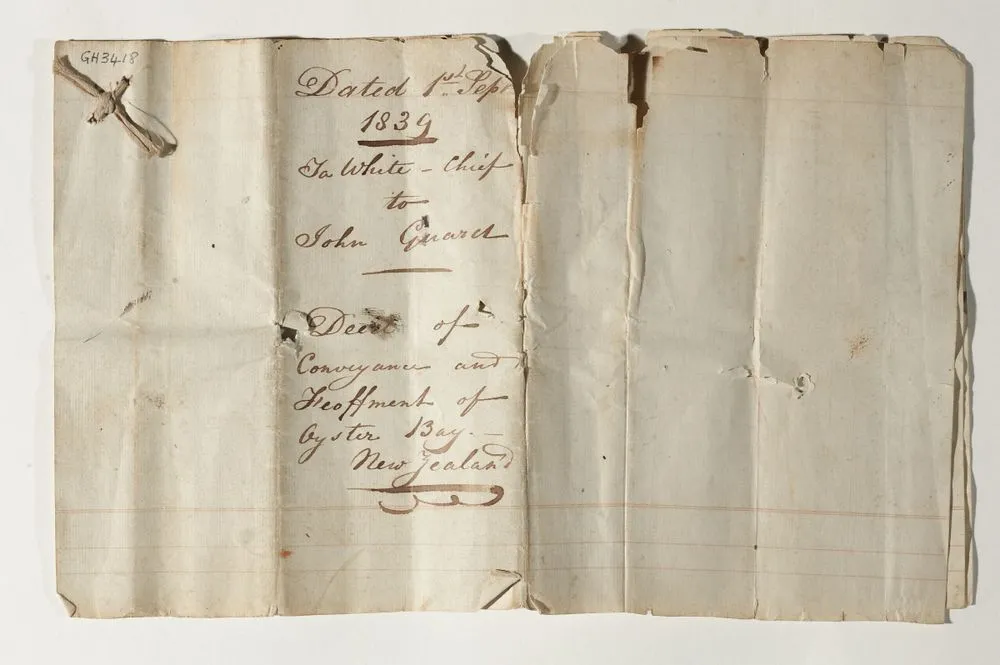 GH3418
Dated 1st Sepr
1839
Ta White - Chief
to
John Guard
Deed of
Conveyance and
Feoffment of
Oyster Bay. -
New Zealand